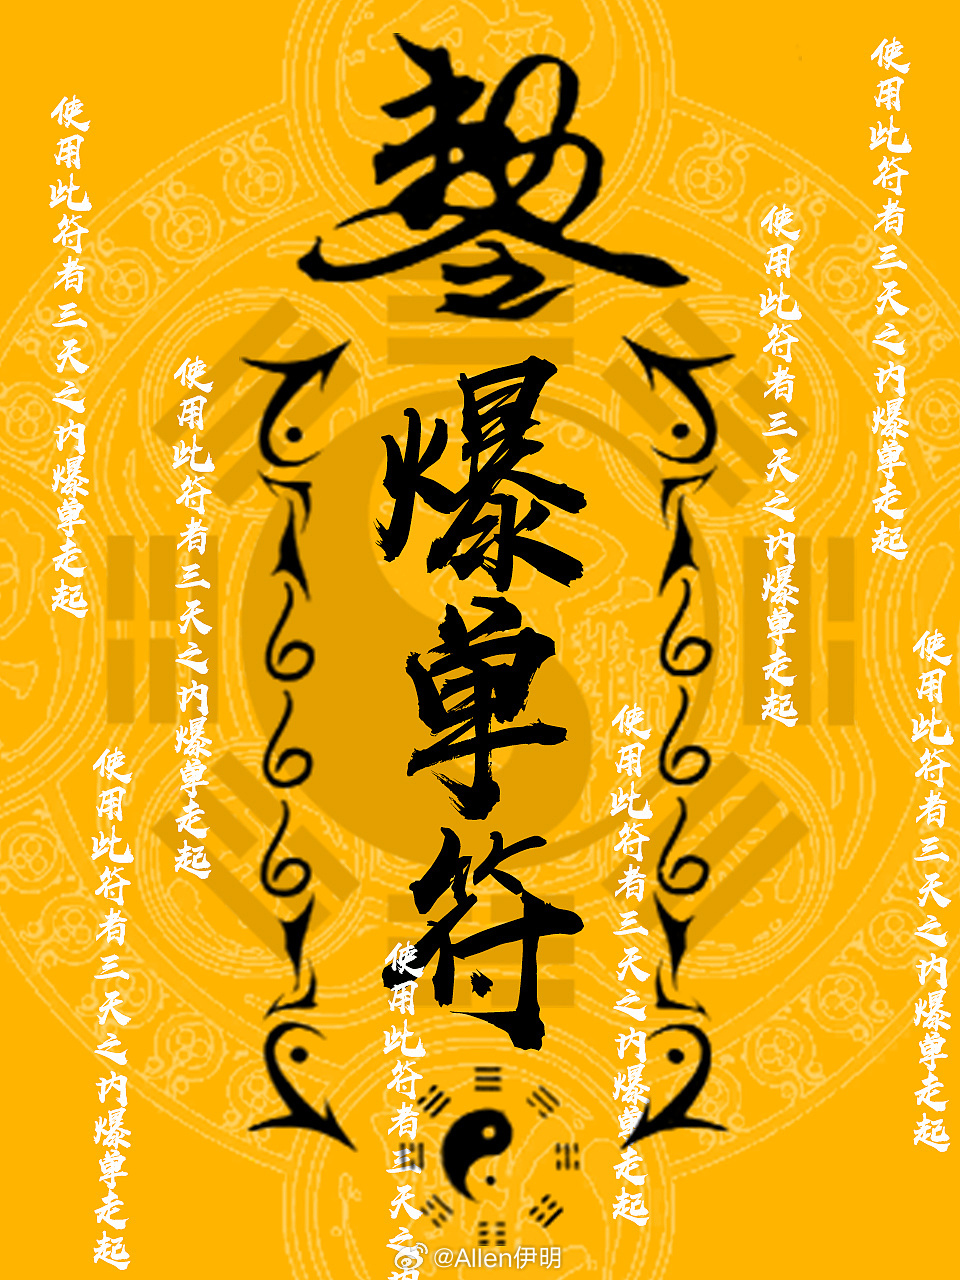 爆单符
使用此符者三天之内爆单走起
使用此符者三天之内爆单走起
使用此符者三天之内爆单走起
使用此符者三天之内爆单走起
使用此符者三天之内爆单走起
使用此符者三天之内爆单走起
使用此符者三天之内爆单走起
使用此符者三天之
@Allen伊明